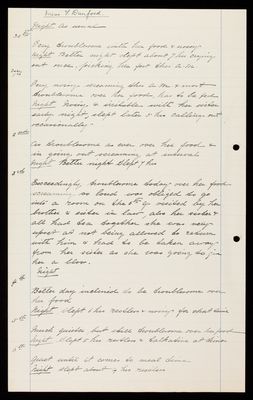 Miss Y. Danford.
Night As usual
30th
Very troublesome with her food & noisy
Night Better night slept about 7 hrs crying
out once,
July 1st
Very noisy screaming this a.m & most
troublesome over her food has to be fed
Night Noisy & irritable with her sister
early night, slept later 5 hrs calling out
occasionally
2nd
As troublesome as ever over her food &
in going out screaming at intervals
Night Better night Slept 7 hrs
3rd
Exceedingly troublesome today over her food
screaming so loud was obliged to go
into a room on the visited by her
brother & sister in law also her sister &
all had tea together she was very
upset at not being allowed to return
with him & had to be taken away
from her sister as she was going to give
her a blow.
Night
4th
Better day inclined to be troublesome over
her food
Night slept 5 hrs restless & noisy for short time
5th
Much quieter but still troublesome over her food
Night Slept 5 hrs restless & talkative at times
Quiet until it comes to meal time
Night slept about 7 hrs restless